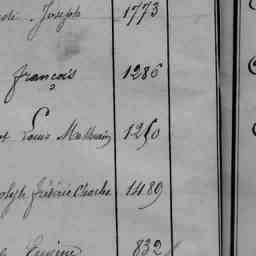 Joseph 1773
françois 1286
Louis Mathurin 1250
olph frédéric Charles 1489
Eugène 832